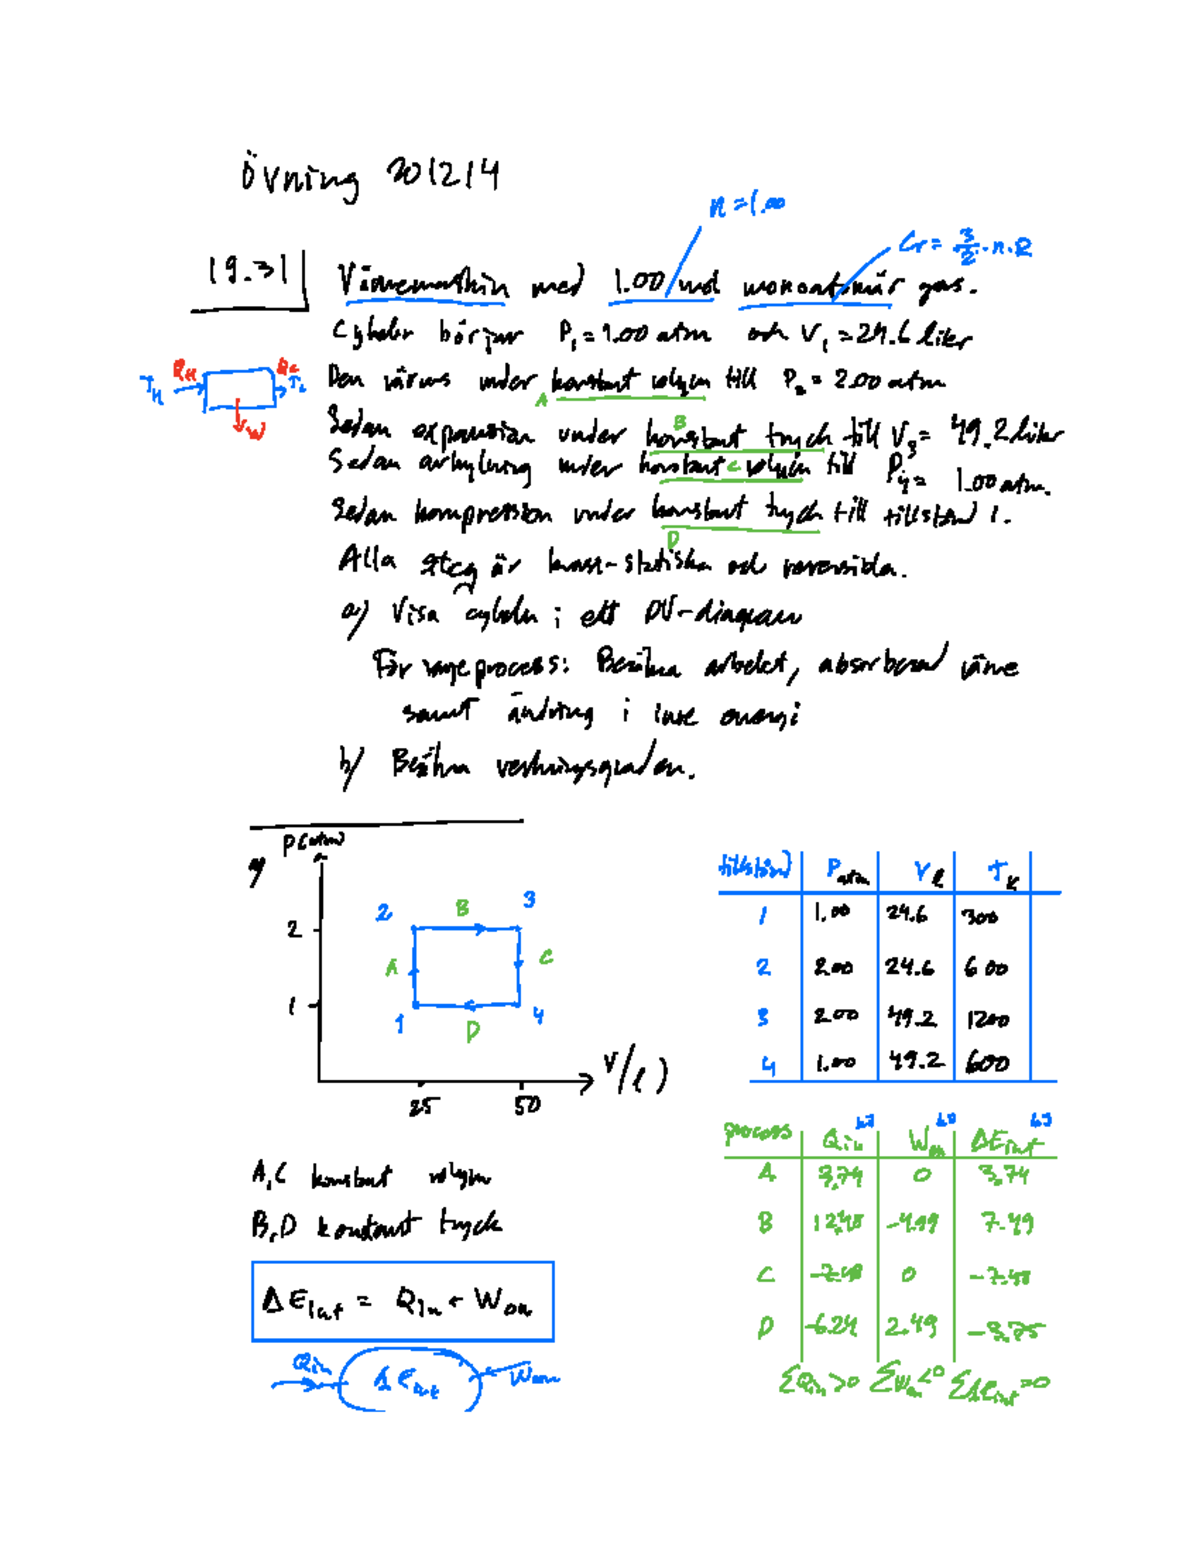 Övning 201214
n = 1.00
Cv = 3/2 · n · R
19.31
Värmemaskin med 1.00 mol monoatomär gas.
Cykeln börjar P1 = 1.00 atm och V1 = 24.6 liter
Den värms under konstant volym till P2 = 2.00 atm
A
TH QH QC TC
W
B
Sedan expansion under konstant tryck till V3 = 49.2 liter
Sedan avkylning under konstant volym till P4 = 1.00 atm.
C
Sedan kompression under konstant tryck till tillstånd 1.
D
Alla steg är kvasi-statiska och reversibla.
a) Visa cykeln i ett PV-diagram
För varje process: Beräkna arbetet, absorberad värme
samt ändring i inre energi
b) Beräkna verkningsgraden.
a) P(atm)
2 B 3
2
A C
1
1 D 4
25 50 V(l)
tillstånd Patm Vl TK
1 1.00 24.6 300
2 2.00 24.6 600
3 2.00 49.2 1200
4 1.00 49.2 600
kJ kJ kJ
process Qin Won ΔEint
A 3.74 0 3.74
B 12.48 -4.99 7.49
C -7.48 0 -7.48
D -6.24 2.49 -3.75
ΣQin > 0 ΣWon < 0 ΣΔEint = 0
A,C konstant volym
B,D konstant tryck
ΔEint = Qin + Won
Qin ΔEint Won